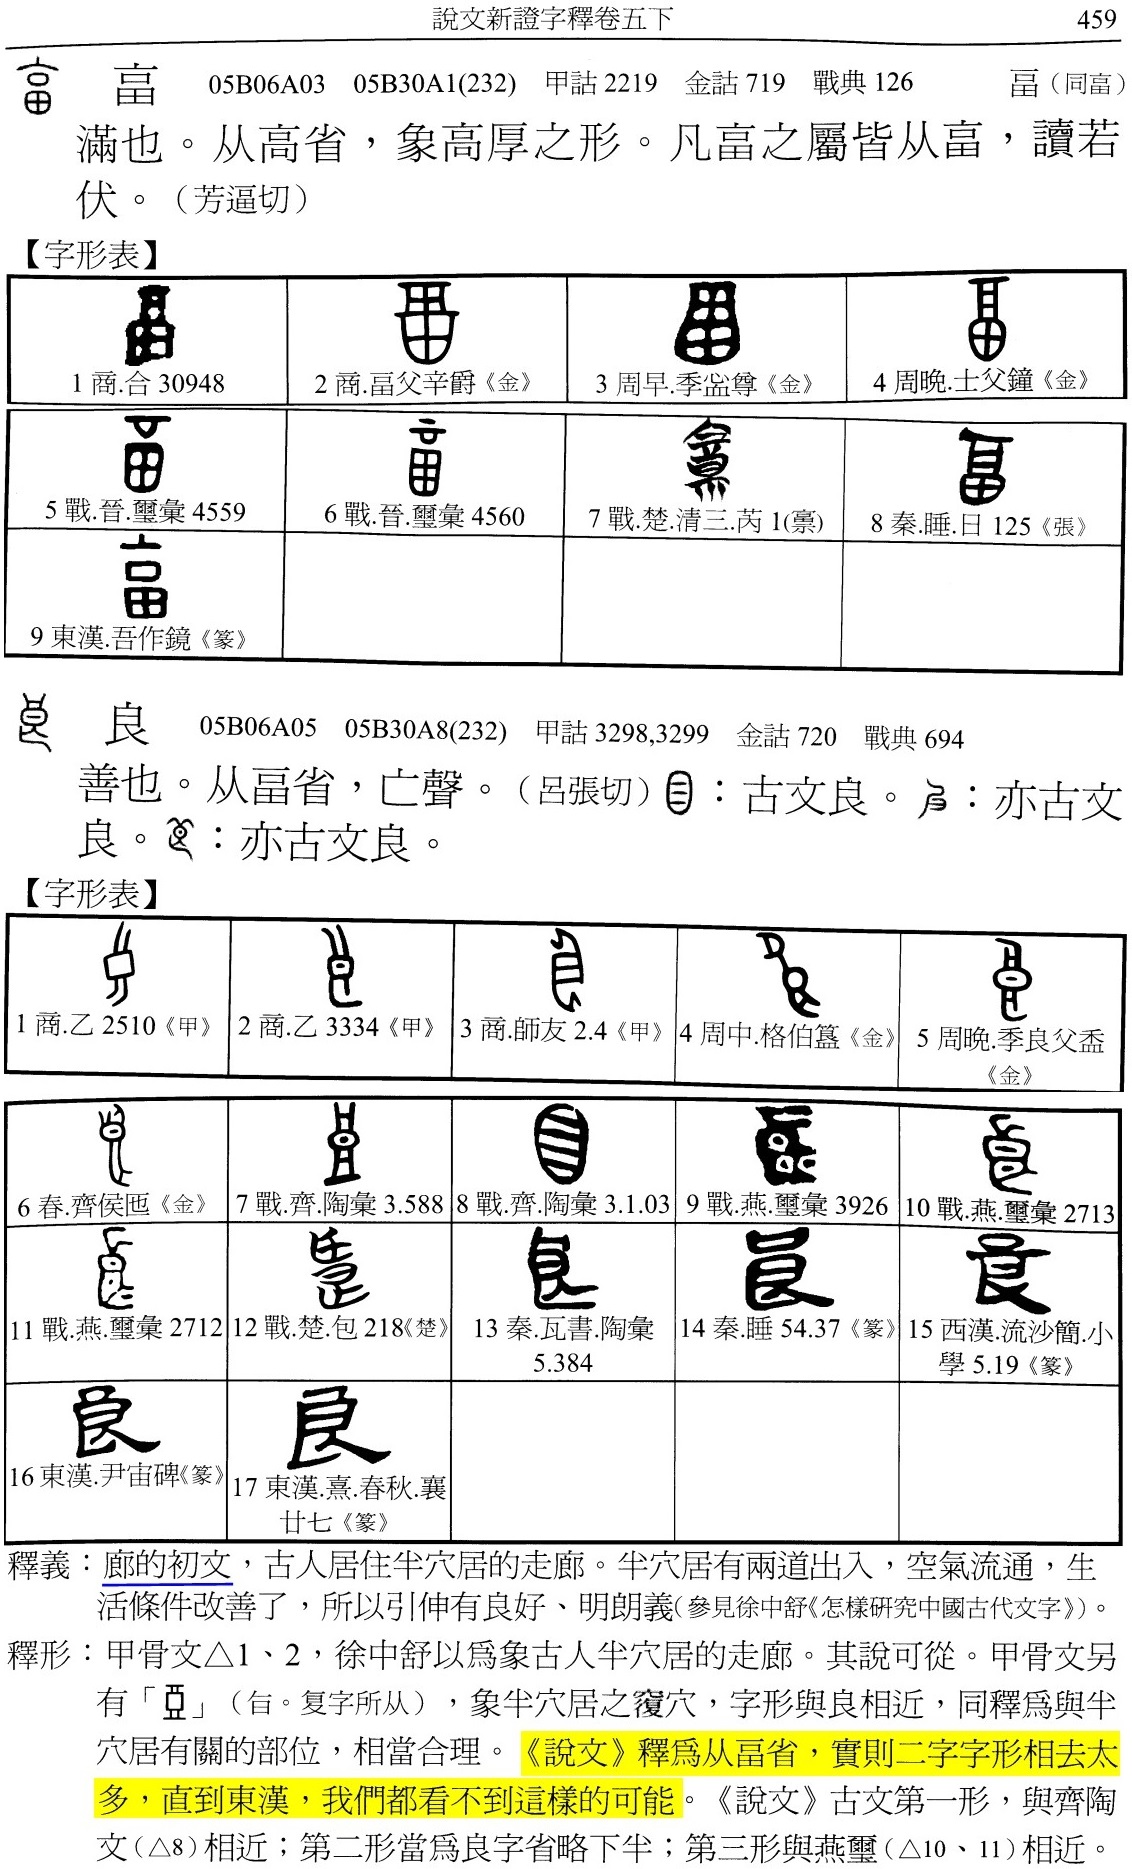 說文新證字釋卷五下 459
畗 05B06A03 05B30A1(232) 甲詁 2219 金詁 719 戰典 126 畐（同畗）
滿也。从高省，象高厚之形。凡畗之屬皆从畗，讀若
伏。（芳逼切）
【字形表】
1 商.合 30948
2 商.畐父辛爵《金》
3 周早.季盁尊《金》
4 周晚.士父鐘《金》
5 戰.晉.璽彙 4559
6 戰.晉.璽彙 4560
7 戰.楚.清三.芮 1
8 秦.睡.日 125《張》
9 東漢.吾作鏡《篆》
良 05B06A05 05B30A8(232) 甲詁 3298,3299 金詁 720 戰典 694
善也。从畐省，亡聲。（呂張切）：古文良。：亦古文
良。：亦古文良。
【字形表】
1 商.乙 2510《甲》
2 商.乙 3334《甲》
3 商.師友 2.4《甲》
4 周中.格伯簋《金》
5 周晚.季良父盉
《金》
6 春.齊侯匜《金》
7 戰.齊.陶彙 3.588
8 戰.齊.陶彙 3.1.03
9 戰.燕.璽彙 3926
10 戰.燕.璽彙 2713
11 戰.燕.璽彙 2712
12 戰.楚.包 218《楚》
13 秦.瓦書.陶彙
5.384
14 秦.睡 54.37《篆》
15 西漢.流沙簡.小
學 5.19《篆》
16 東漢.尹宙碑《篆》
17 東漢.熹.春秋.襄
廿七《篆》
釋義：廊的初文，古人居住半穴居的走廊。半穴居有兩道出入，空氣流通，生
活條件改善了，所以引伸有良好、明朗義（參見徐中舒《怎樣研究中國古代文字》）。
釋形：甲骨文△1、2，徐中舒以為象古人半穴居的走廊。其說可從。甲骨文另
有「」（㫐。复字所从），象半穴居之覆穴，字形與良相近，同釋為與半
穴居有關的部位，相當合理。《說文》釋為从畐省，實則二字字形相去太
多，直到東漢，我們都看不到這樣的可能。《說文》古文第一形，與齊陶
文（△8）相近；第二形當為良字省略下半；第三形與燕璽（△10、11）相近。